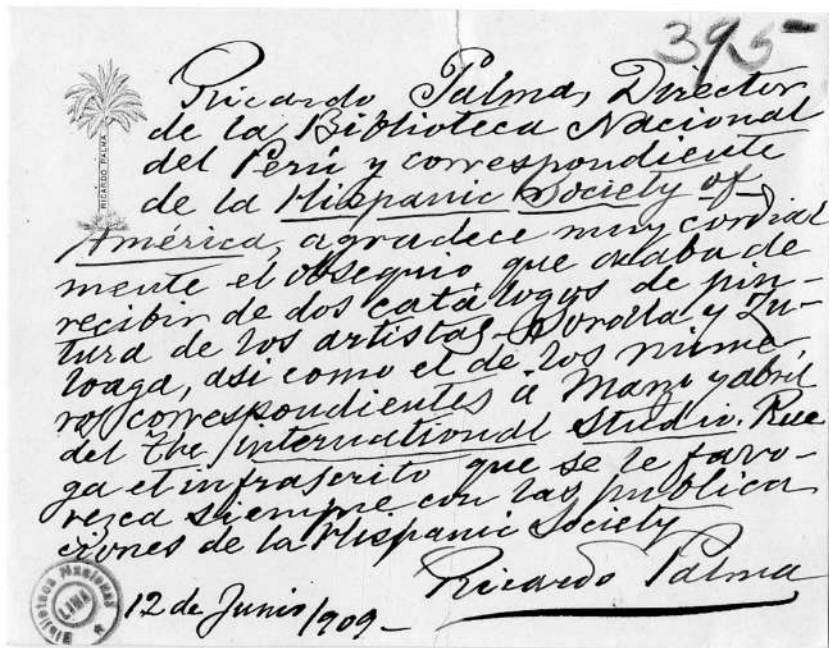 395-
RICARDO PALMA
Ricardo Palma, Director
de la Biblioteca Nacional
del Perú y correspondiente
de la Hispanic Society of
América, agradece muy cordial
mente el obsequio que acaba de
recibir de dos catálogos de pin-
tura de los artistas Sorolla y Zu-
loaga, asi como el de los nume-
ros correspondientes á Marzo y abril
del The International Studio. Rue
ga el infrascrito que se le favo-
rezca siempre con las publica
ciones de la Hispanic Society
Ricardo Palma
12 de Junio/909-
Biblioteca Nacional
LIMA